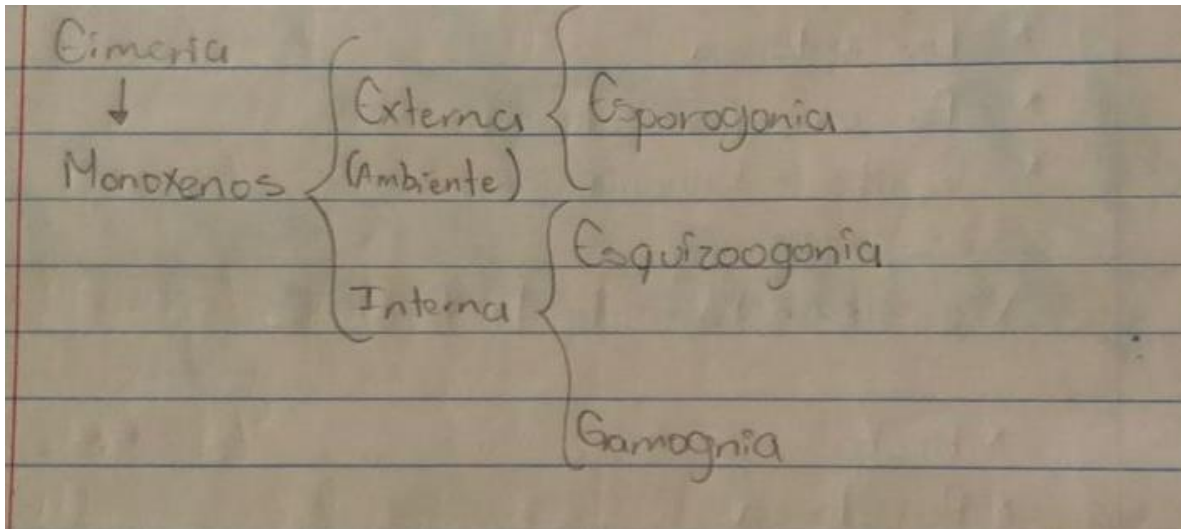 Eimeria
↓
Monoxenos
Externa
(Ambiente)
Esporogonia
Interna
Esquizoogonia
Gamognia